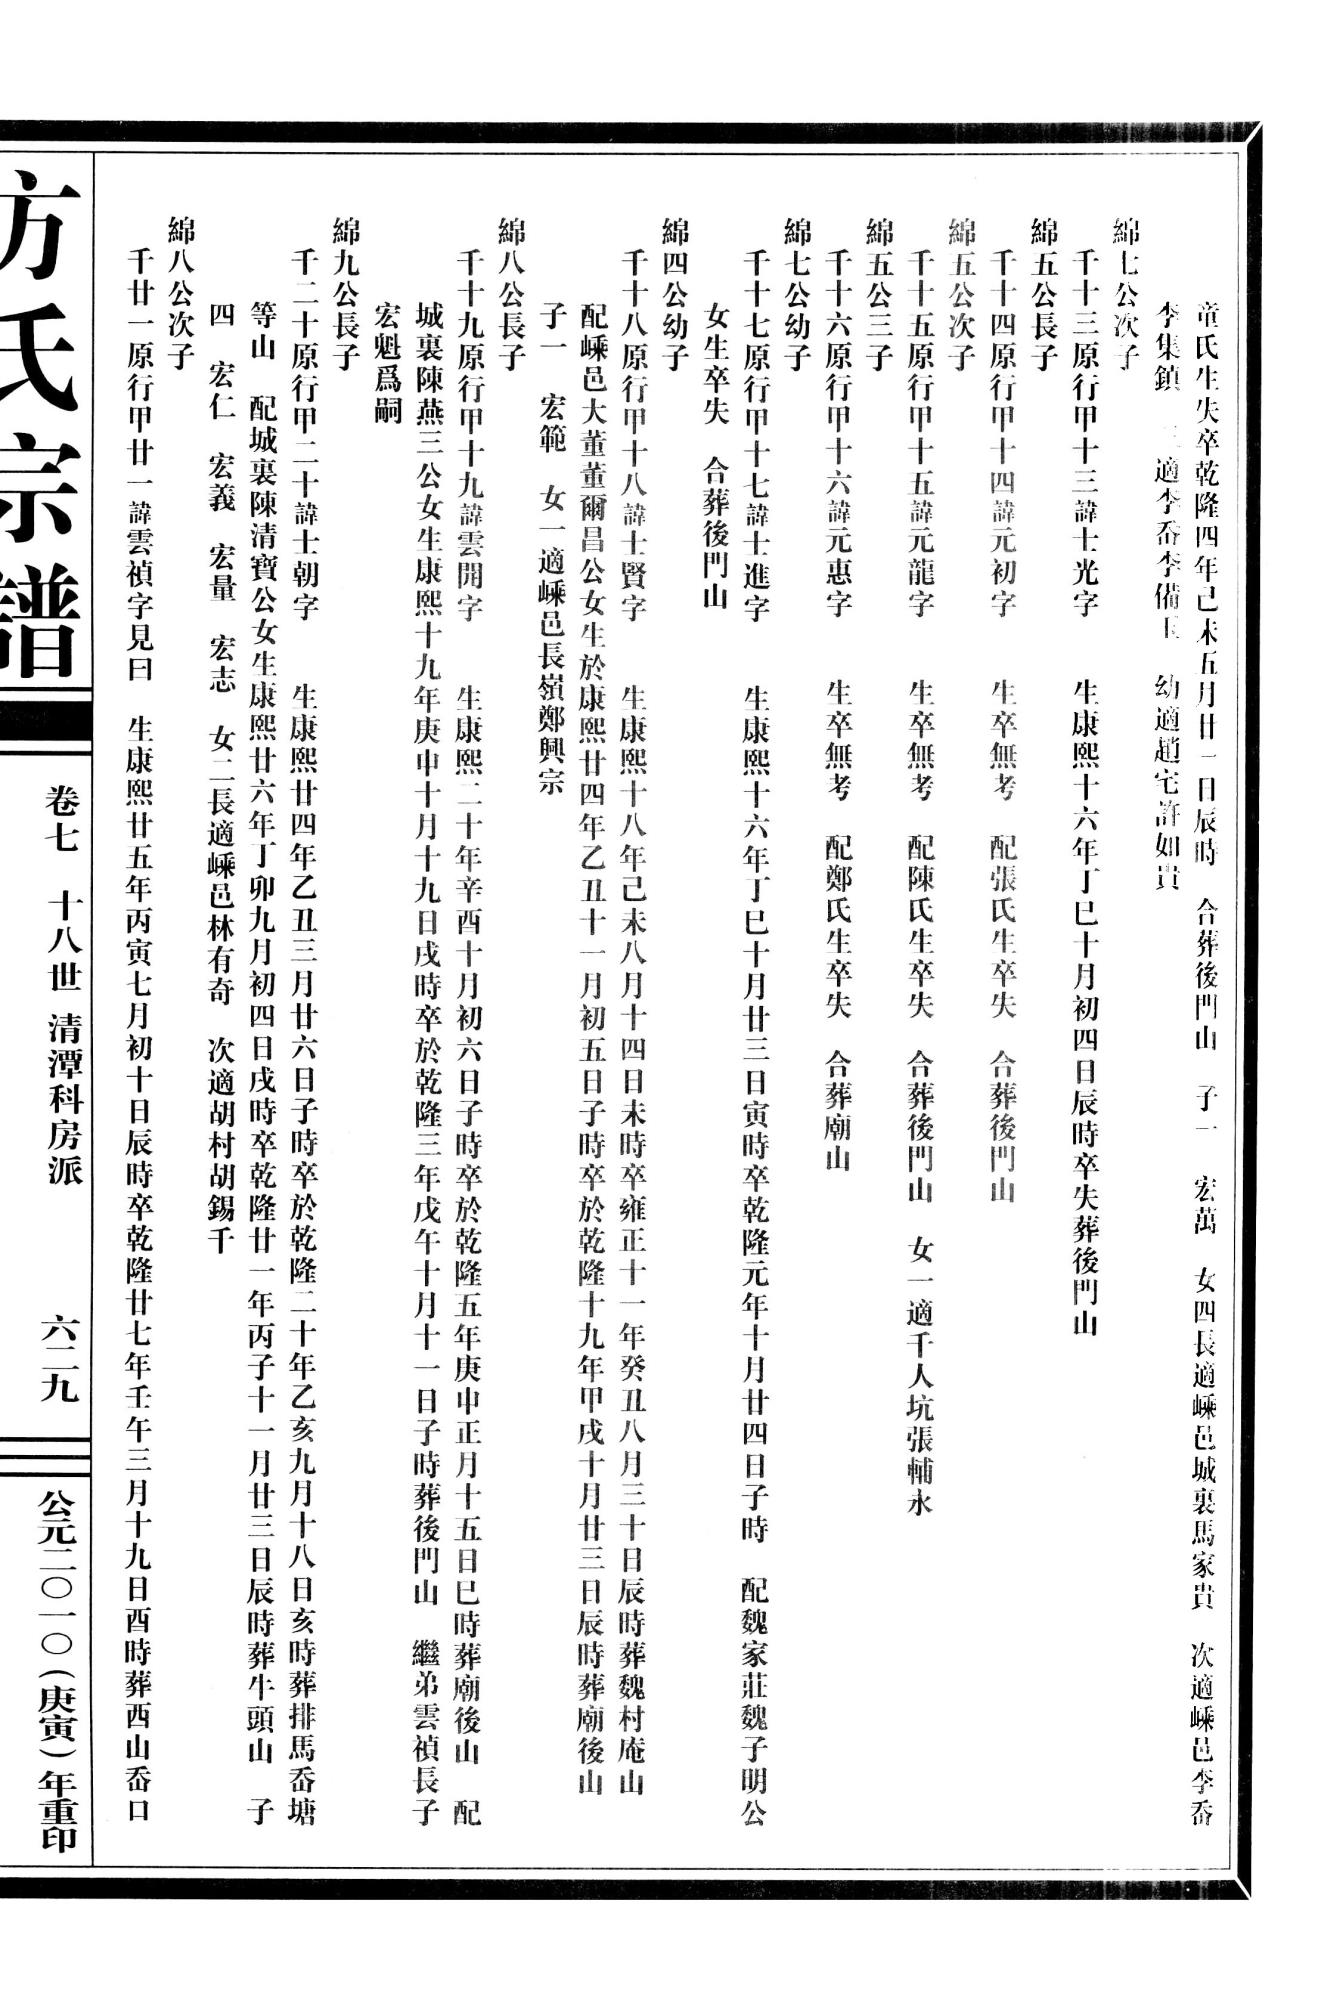 童氏生失卒乾隆四年己未五月廿一日辰時　合葬後門山　子一　宏萬　女四長適嵊邑城裏馬家貴　次適嵊邑李岙
李集鎮　三適李岙李備玉　幼適趙宅許如貴
綿七公次子
千十三原行甲十三諱士光字　　生康熙十六年丁巳十月初四日辰時卒失葬後門山
綿五公長子
千十四原行甲十四諱元初字　　生卒無考　配張氏生卒失　合葬後門山
綿五公次子
千十五原行甲十五諱元龍字　　生卒無考　配陳氏生卒失　合葬後門山　女一適千人坑張輔永
綿五公三子
千十六原行甲十六諱元惠字　　生卒無考　配鄭氏生卒失　合葬廟山
綿七公幼子
千十七原行甲十七諱士進字　　生康熙十六年丁巳十月廿三日寅時卒乾隆元年十月廿四日子時　配魏家莊魏子明公
女生卒失　合葬後門山
綿四公幼子
千十八原行甲十八諱士賢字　　生康熙十八年己未八月十四日未時卒雍正十一年癸丑八月三十日辰時葬魏村庵山
配嵊邑大董董爾昌公女生於康熙廿四年乙丑十一月初五日子時卒於乾隆十九年甲戌十月廿三日辰時葬廟後山
子一　宏範　女一適嵊邑長嶺鄭興宗
綿八公長子
千十九原行甲十九諱雲開字　　生康熙二十年辛酉十月初六日子時卒於乾隆五年庚申正月十五日巳時葬廟後山　配
城裏陳燕三公女生康熙十九年庚申十月十九日戌時卒於乾隆三年戊午十月十一日子時葬後門山　繼弟雲禎長子
宏魁爲嗣
綿九公長子
千二十原行甲二十諱士朝字　　生康熙廿四年乙丑三月廿六日子時卒於乾隆二十年乙亥九月十八日亥時葬排馬岙塘
等山　配城裏陳清寶公女生康熙廿六年丁卯九月初四日戌時卒乾隆廿一年丙子十一月廿三日辰時葬牛頭山　子
四　宏仁　宏義　宏量　宏志　女二長適嵊邑林有奇　次適胡村胡錫千
綿八公次子
千廿一原行甲廿一諱雲禎字見曰　生康熙廿五年丙寅七月初十日辰時卒乾隆廿七年壬午三月十九日酉時葬西山岙口
方氏宗譜
卷七　十八世　清潭科房派　六二九
公元二〇一〇（庚寅）年重印